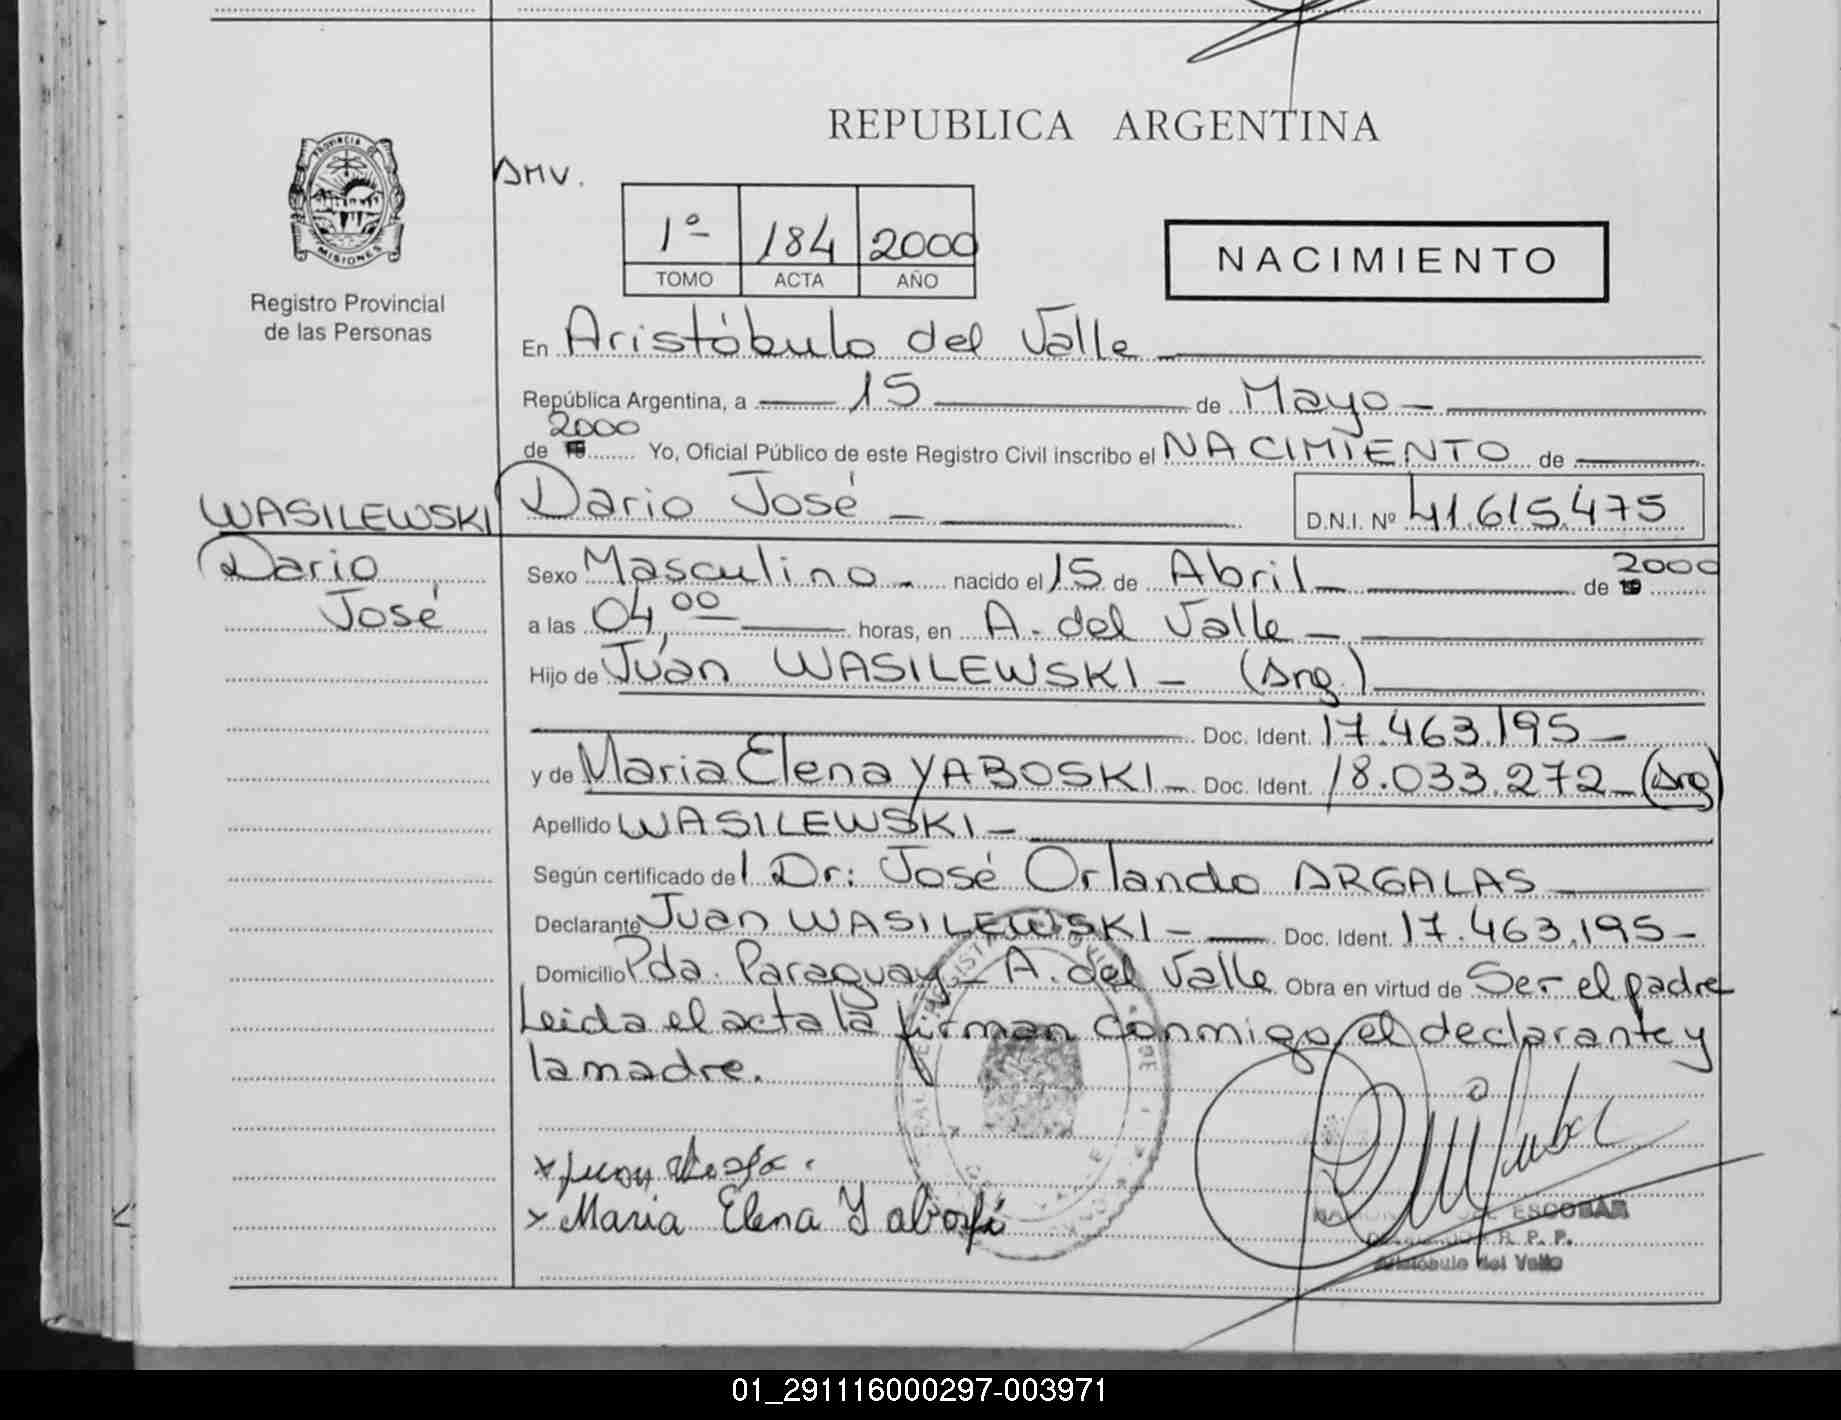 REPUBLICA ARGENTINA
PROVINCIA DE
MISIONES
Registro Provincial
de las Personas
1º 184 2000
TOMO ACTA AÑO
NACIMIENTO
En Aristóbulo del Valle
República Argentina, a 15 de Mayo
2000
de Yo, Oficial Público de este Registro Civil inscribo el NACIMIENTO de
WASILEWSKI
Dario José
D.N.I. Nº 41.615.475
Dario
José
Sexo Masculino nacido el 15 de Abril de 2000
a las 04,00 horas, en A. del Valle
Hijo de Juan WASILEWSKI (Arg.)
Doc. Ident. 17.463.195
y de Maria Elena YABOSKI Doc. Ident. 18.033.272 (Arg)
Apellido WASILEWSKI
Según certificado del Dr: José Orlando ARGALAS
Declarante Juan WASILEWSKI Doc. Ident. 17.463.195
Domicilio Pda. Paraguay A. del Valle Obra en virtud de Ser el padre
Leida el acta la firman conmigo, el declarante y
la madre.
Maria Elena Yaboski
ESCOBAR
R. P. P.
Aristóbulo del Valle
01_291116000297-003971